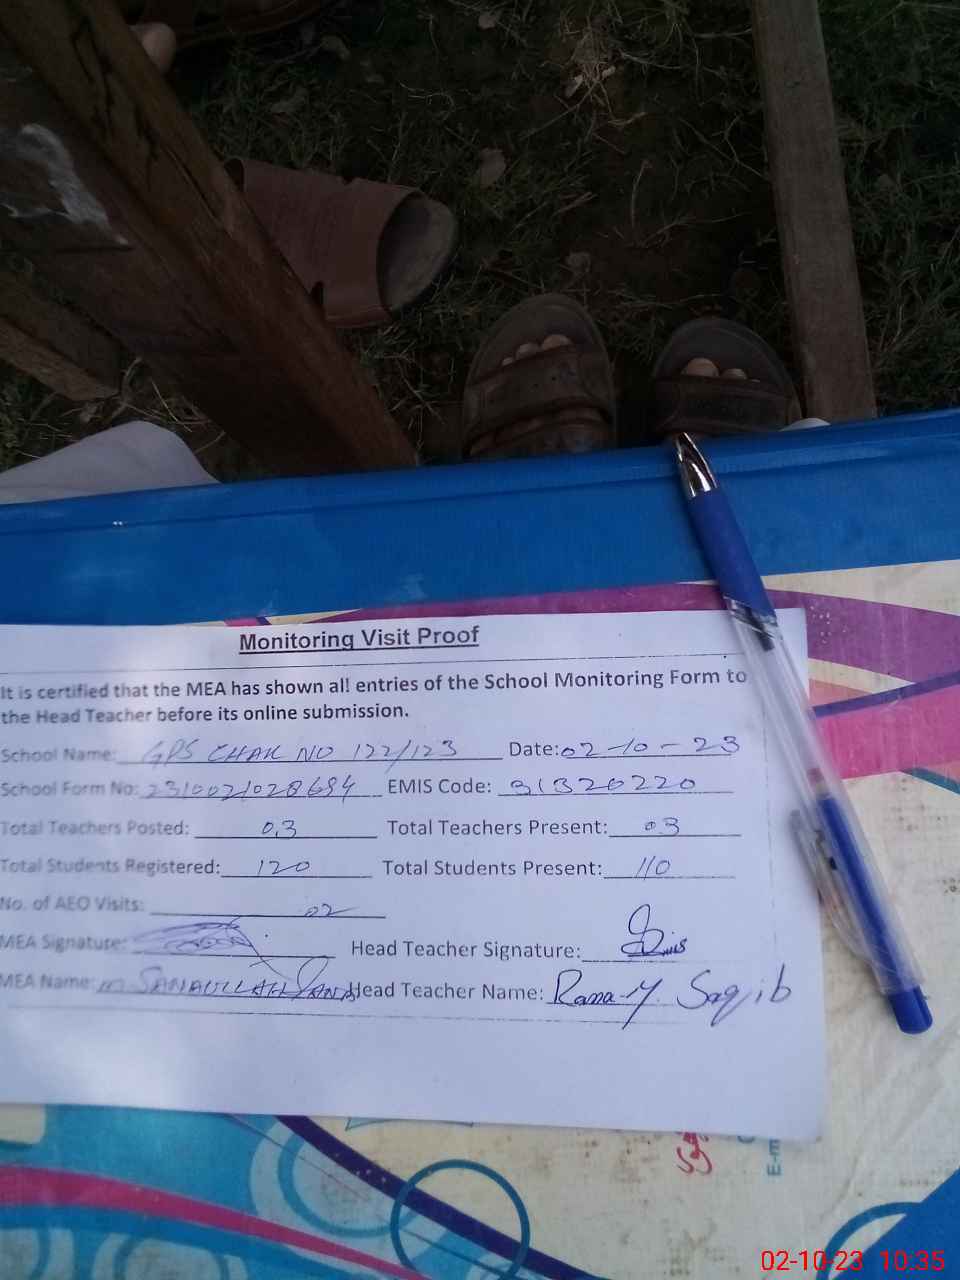 Monitoring Visit Proof
It is certified that the MEA has shown all entries of the School Monitoring Form to
the Head Teacher before its online submission.
School Name: GPS CHAK NO 122/123 Date: 02-10-23
School Form No: 2310021028684 EMIS Code: 31320220
Total Teachers Posted: 03 Total Teachers Present: 03
Total Students Registered: 120 Total Students Present: 110
No. of AEO Visits: 02
MEA Signature: Head Teacher Signature:
MEA Name: M SANAULLAH Head Teacher Name: Rana M. Saqib
E-m
02-10-23 10:35